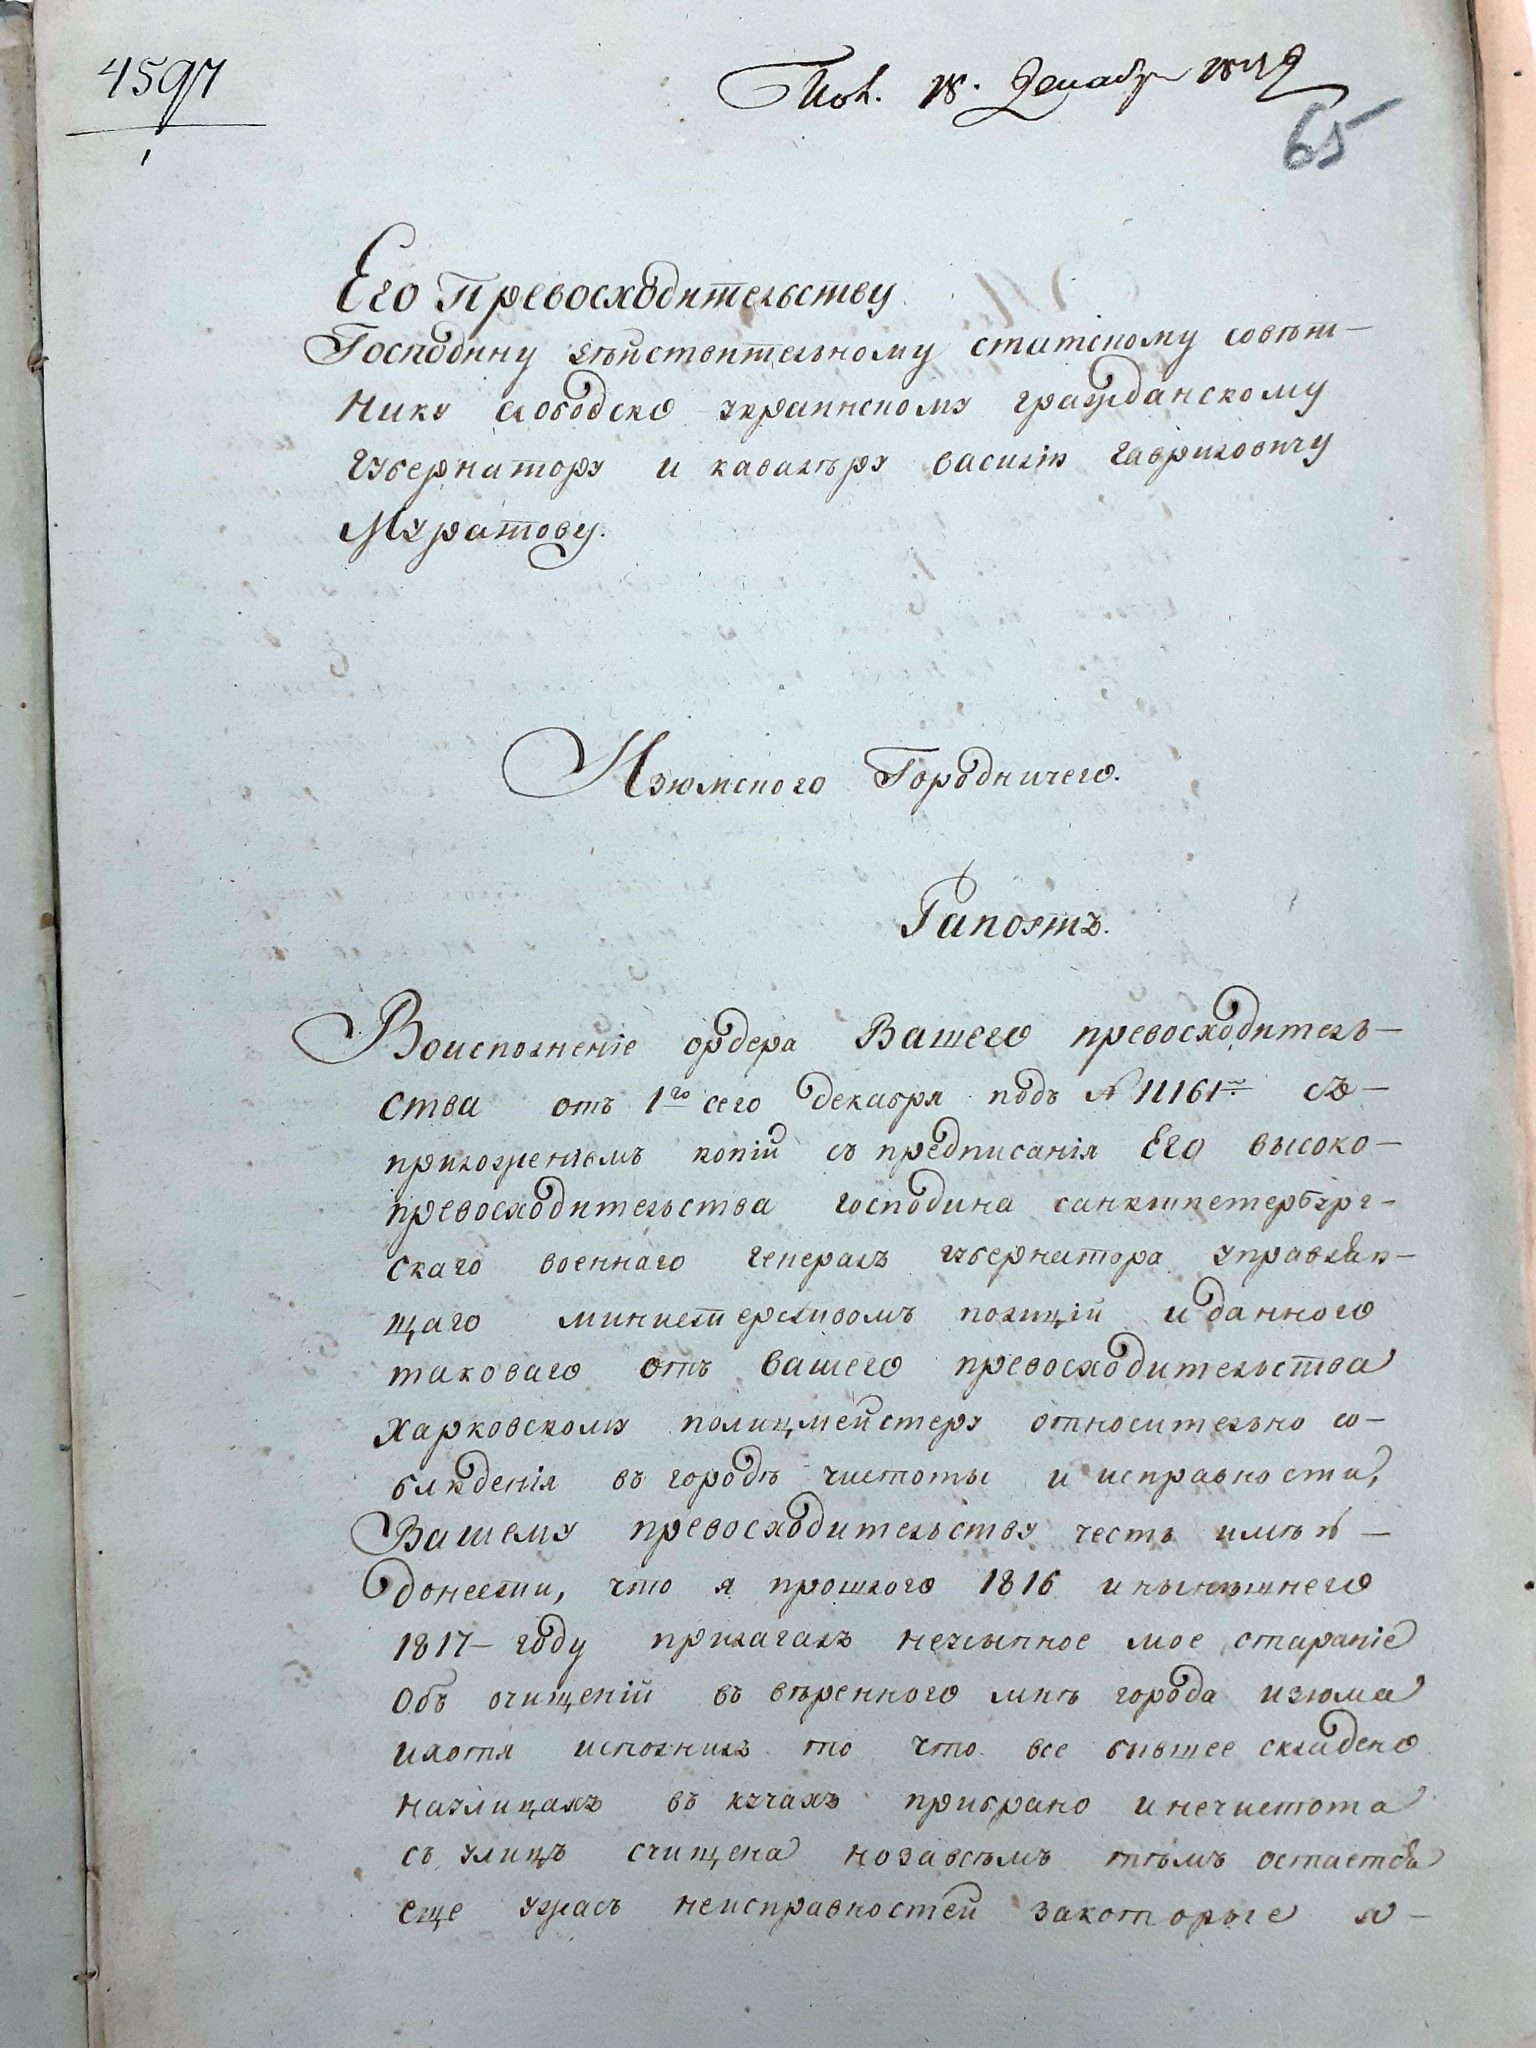 4597
1
Пол. 18. Декабр 1817
65
Его Превосходительству
Господину дѣйствительному статскому совѣт-
нику слободско украинскому гражданскому
губернатору и кавалѣру василію гавриловичу
Муратову.
Изюмского Городничего.
Рапортъ.
Воисполненіе ордера Вашего превосходитель-
ства отъ 1го сего декабря подъ № 11161м съ-
приложеніемъ копіи съ предписанія Его высоко-
превосходительства господина санктпетербург-
скаго военнаго генералъ губернатора управляю-
щаго министерствомъ полиціи и данного
таковаго отъ вашего превосходительства
харковскому полицмейстеру относительно со-
блюденія въ городѣ чистоты и исправности,
Вашему превосходительству честь имѣю-
донести, что я прошлого 1816 и нынѣшнего
1817- году прилагалъ неусыпное мое стараніе
Объ очищеній въ вѣренного мнѣ города изюма
ихотя исполнилъ то что все бывшее складено
наулицахъ въ кучахъ прибрано инечистота
съ улицъ счищена нозавсѣмъ тѣмъ остается
еще ужасъ неисправностей закоторые я-